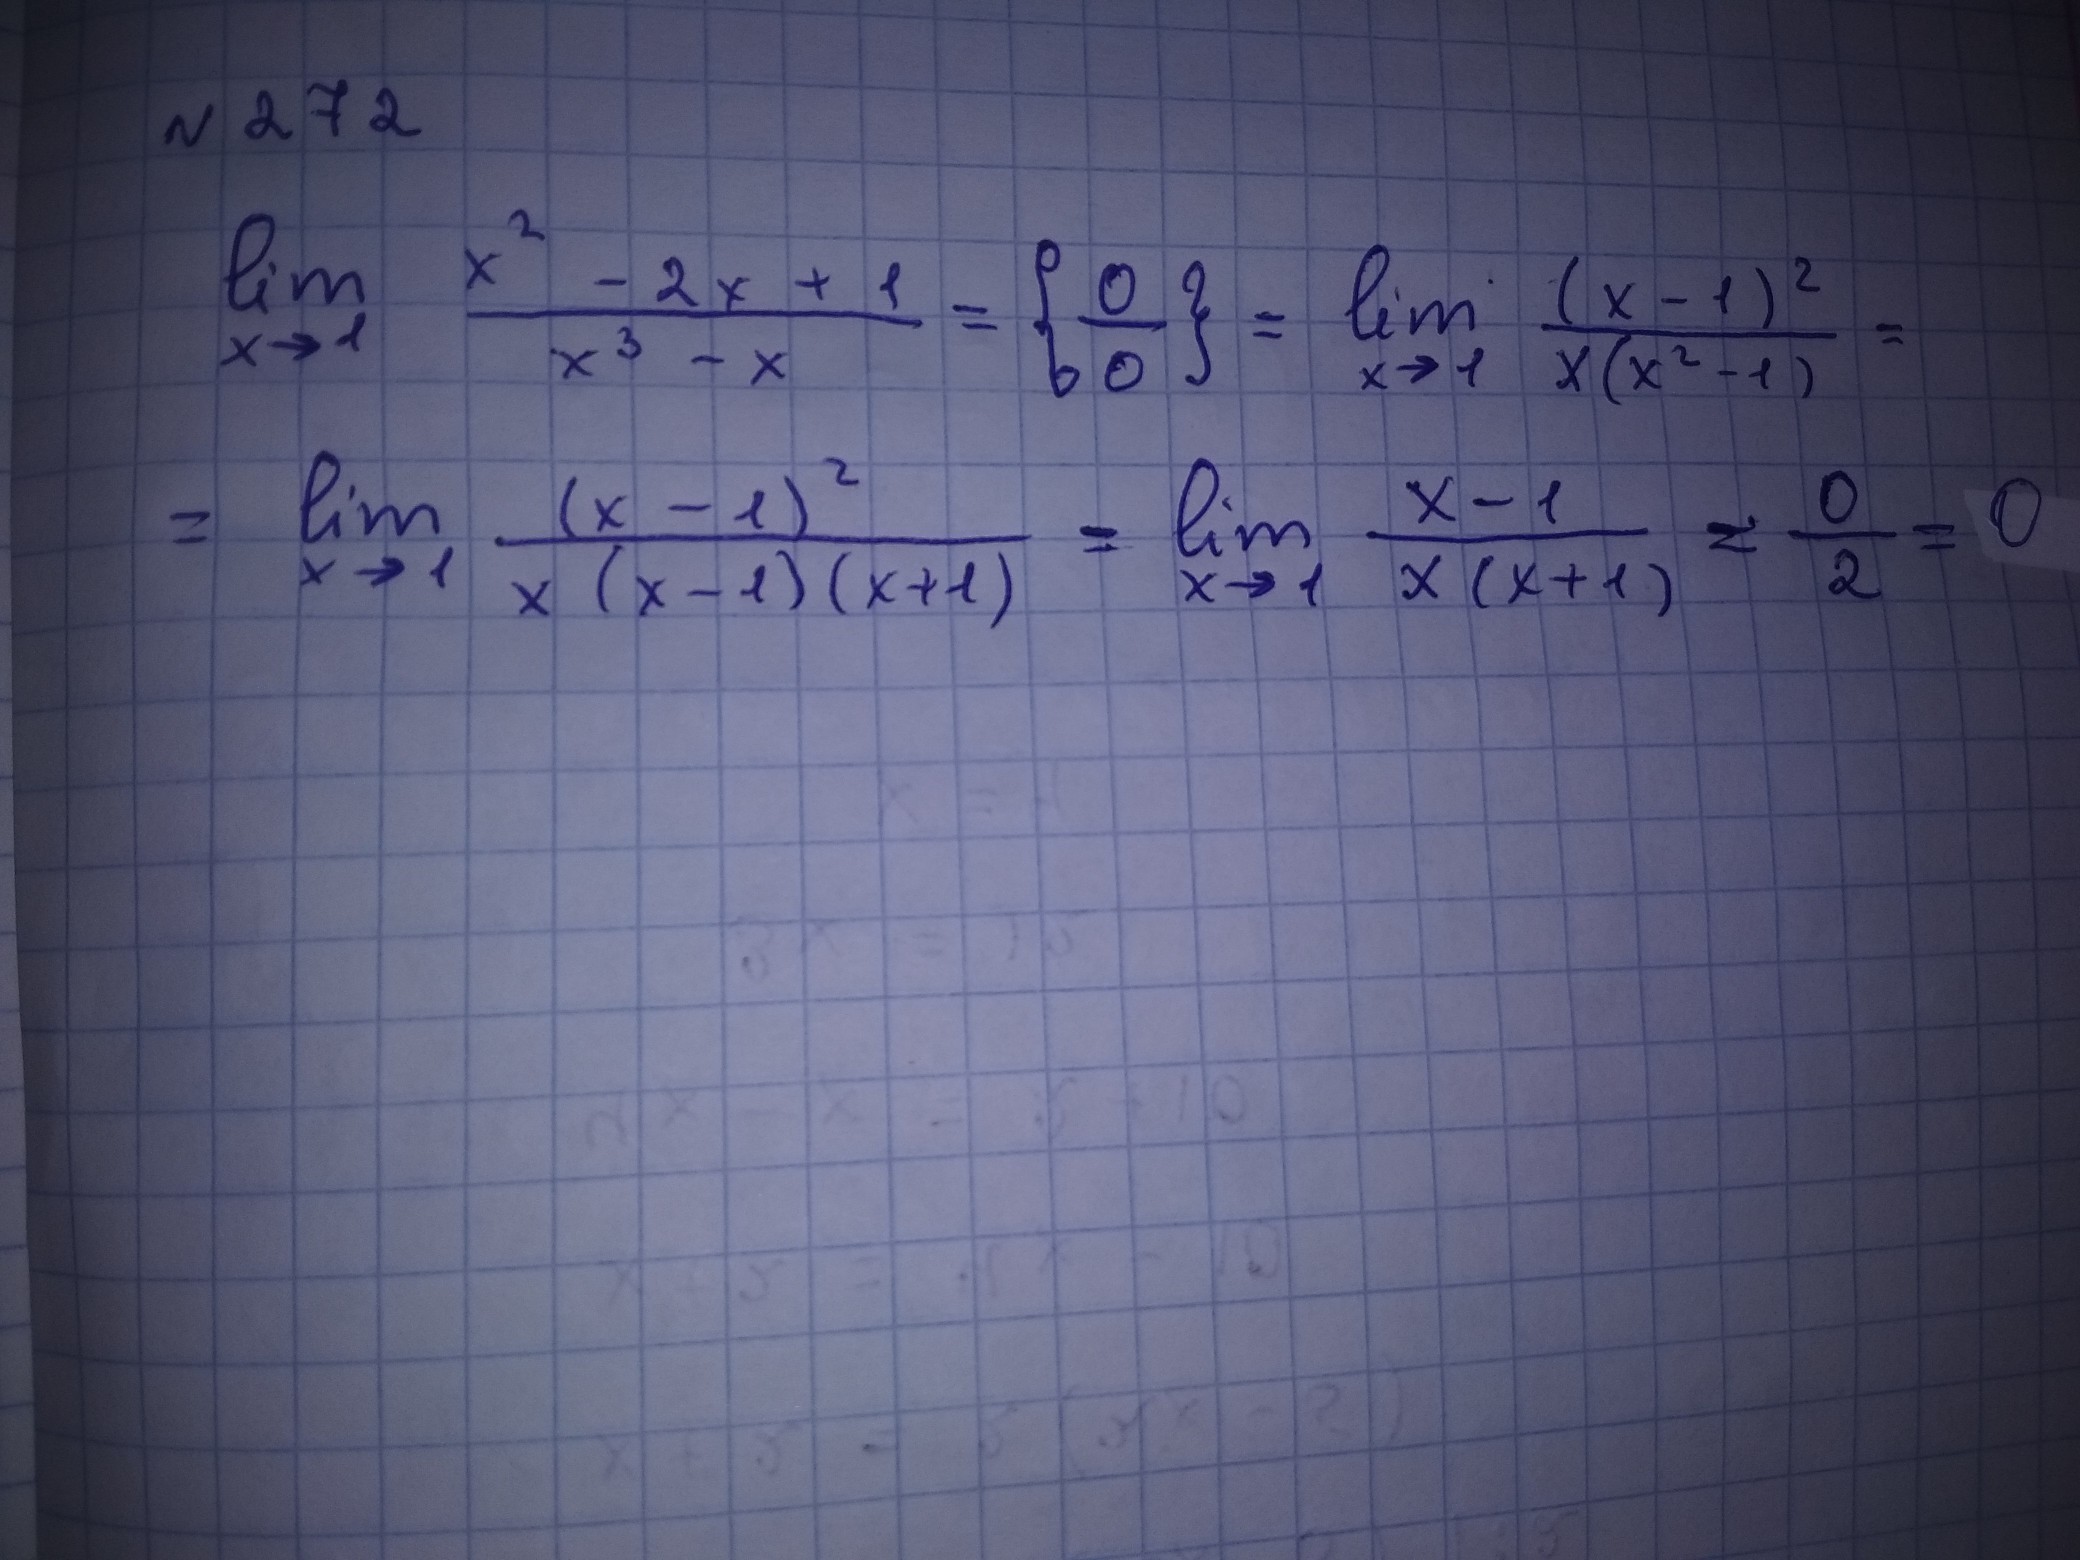 N 272
lim x→1 (x² - 2x + 1)/(x³ - x) = {0/0} = lim x→1 (x-1)²/(x(x²-1)) =
= lim x→1 (x-1)²/(x(x-1)(x+1)) = lim x→1 (x-1)/(x(x+1)) = 0/2 = 0